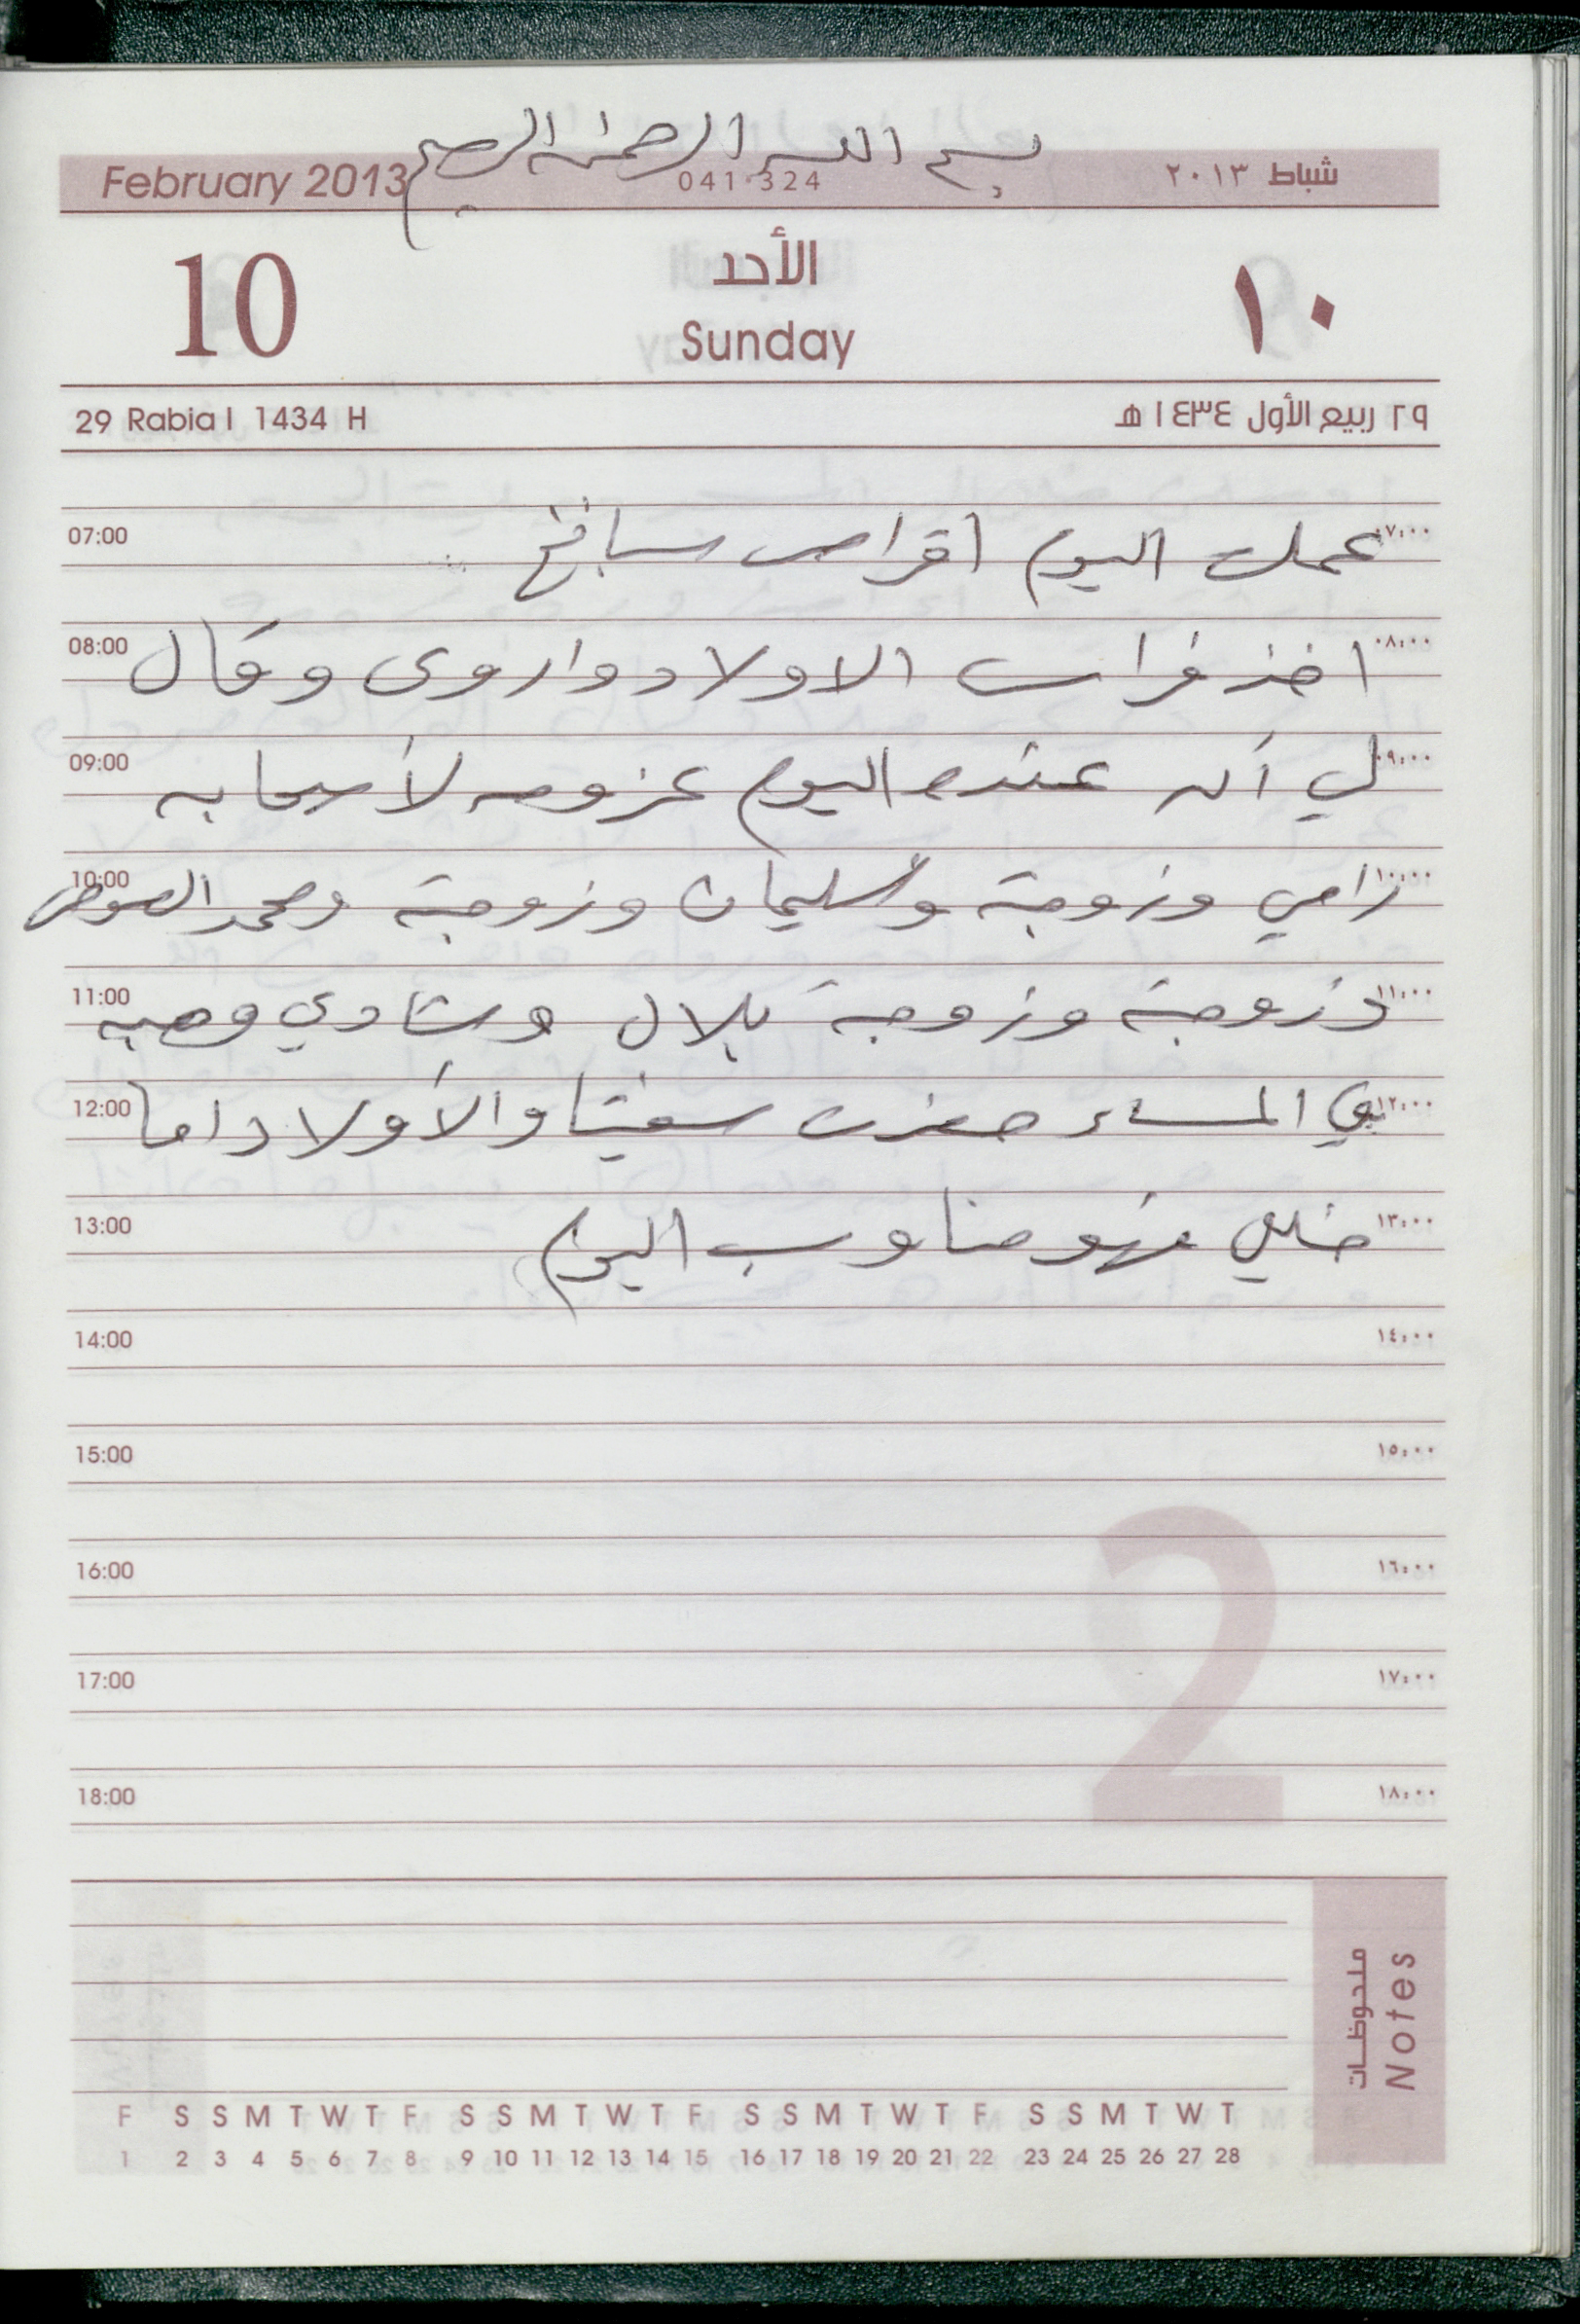 بسم الله الرحمن الرحيم
February 2013 041-324 شباط ٢٠١٣
10 الأحد ١٠
Sunday
29 Rabia I 1434 H ٢٩ ربيع الأول ١٤٣٤ هـ
07:00 عملت اليوم اقراص سبانخ ٠٧:٠٠
08:00 اخذ فراس الاولاد واروى وقال ٠٨:٠٠
09:00 لي أن عنده اليوم عزومه لأصحابه ٠٩:٠٠
10:00 رامي وزوجة وسليمان وزوجة ومحمد الصوص ١٠:٠٠
11:00 وزوجة وزوجة بلال وشادي وهبه ١١:٠٠
12:00 في المساء حضرت سفيتا والأولاد اما ١٢:٠٠
13:00 خليل فهو مناوب اليوم ١٣:٠٠
14:00 ١٤:٠٠
15:00 ١٥:٠٠
16:00 ١٦:٠٠
17:00 ١٧:٠٠
18:00 ١٨:٠٠
2
ملحوظات
Notes
F S S M T W T F S S M T W T F S S M T W T F S S M T W T
1 2 3 4 5 6 7 8 9 10 11 12 13 14 15 16 17 18 19 20 21 22 23 24 25 26 27 28